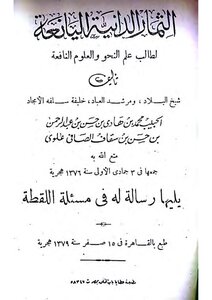 الثمار الدانية اليانعة
لطالب علم النحو والعلوم النافعة
تأليف
شيخ البلاد، ومرشد العباد، خليفة سلفه الأمجاد
الحبيب محمد بن هادي بن حسن بن عبد الرحمن
بن حسن بن سقاف السقاف علوي
متع الله به
جمعها في ٣ جمادى الأولى سنة ١٣٧٦ هجرية
يليها رسالة له في مسئلة اللقطة
طبع بالقاهرة في ١٥ صفر سنة ١٣٧٩ هجرية